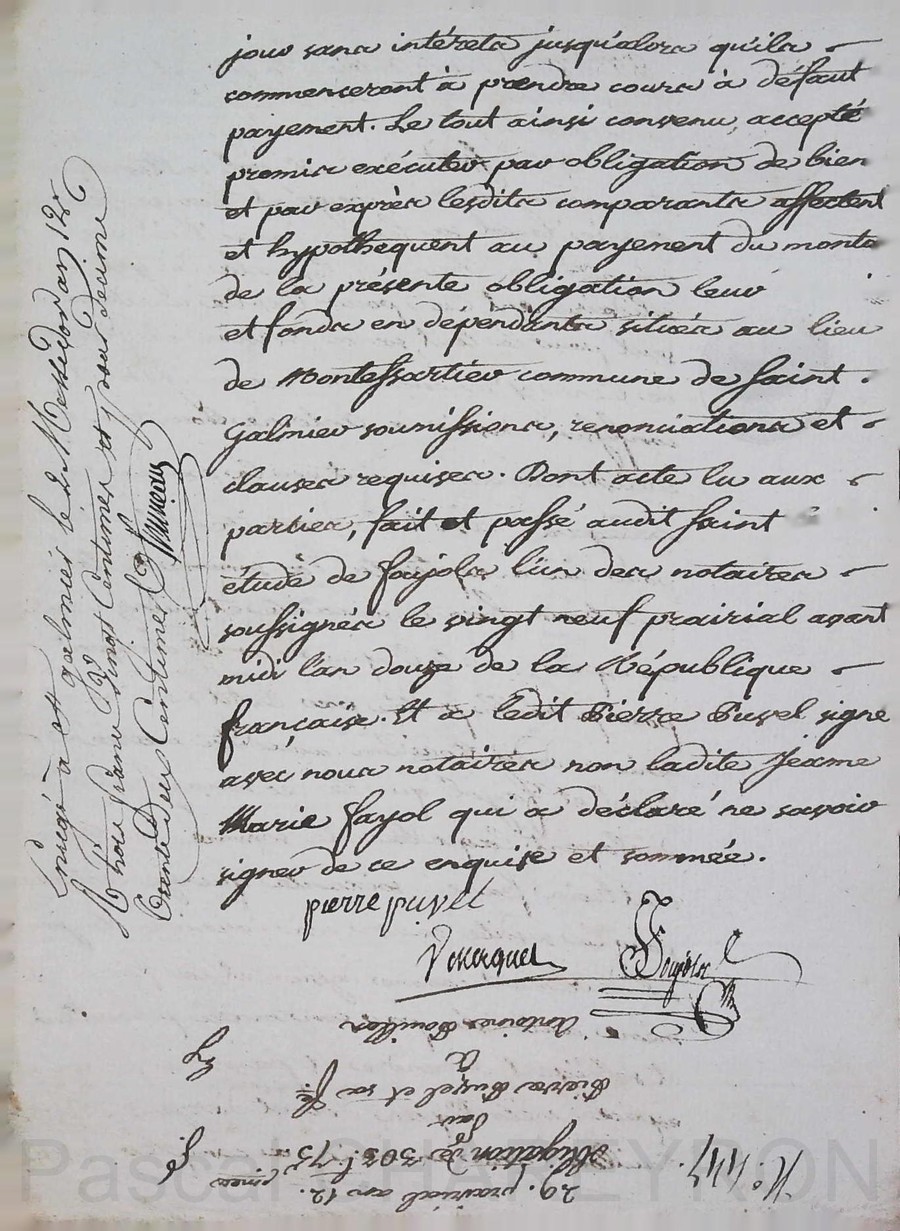 jour sans intérets jusqu'alors qu'ils
commenceront à prendre cours à défaut
payement. Le tout ainsi convenu, accepté
promis exécuter par obligation de bien
et par exprès lesdits comparants affectent
et hypothequent au payement du monta
de la présente obligation leur
et fonds en dépendants situés au lieu
de Montessartier commune de Saint
Galmier soumissions, renonciations et
clauses requises. Dont acte lu aux
parties, fait et passé audit Saint
étude de fayols l'un des notaires
soussignés le vingt neuf prairial avant
midi l'an douze de la République
française. Et a ledit Pierre Puvel signe
avec nous notaires non ladite Jeanne
Marie fayol qui a déclaré ne savoir
signer de ce enquise et sommée.
pierre puvel
fayols
à st galmier le 2 Messidor an 12
trois francs vingt Centimes et pour decime
trente deux Centimes
N.° 444.
29. prairial an 12.
Obligation de 303.l 75
Par
Pierre Puvel et sa fe
à
Antoine Bouillon